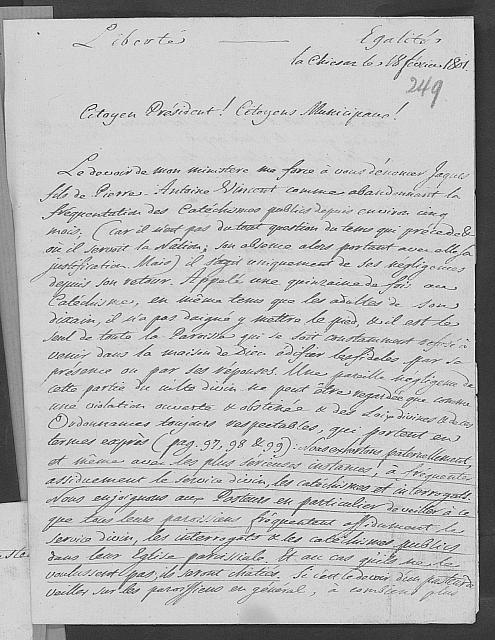 Liberté Egalité
la Chiesaz le 18 février 1801.
249
Citoyen Président! Citoyens Municipaux!
Le devoir de mon ministere me force à vous dénoncer Jaques
fils de Pierre-Antoine Vincent comme abandonnant la
fréquentation des Catéchismes publics depuis environ cinq
mois. (car il n'est pas du tout question du tems qui précede &
où il servoit la Nation; son absence alors portant avec elle sa
justification. Mais) il s'agit uniquement de ses négligences
depuis son retour. Appelé une quinzaine de fois au
Catéchisme, en même tems que les adultes de son
dixain, il n'a pas daigné y mettre le pied, & il est le
seul de toute la Paroisse qui se soit constamment refusé à
venir dans la maison de Dieu édifier les fideles par sa
présence ou par ses réponses. Une pareille négligence de
cette partie du culte divin ne peut être regardée que comme
une violation ouverte & obstinée & des Loix divines & de ces
Ordonnances toujours respectables, qui portent en
termes exprès (pag. 97, 98 & 99): Nous exhortons paternellement,
et même avec les plus sérieuses instances, à fréquenter
assiduement le service divin, les catéchismes et interrogats.
Nous enjoignons aux Pasteurs en particulier de veiller à ce
que tous leurs paroissiens fréquentent assidument le
service divin, les interrogats & les catéchismes publics
dans leur Eglise paroissiale. Et au cas qu'ils ne le
voulussent pas, ils seront châtiés. Si c'est le devoir d'un pasteur de
veiller sur les paroissiens en général, à combien plus